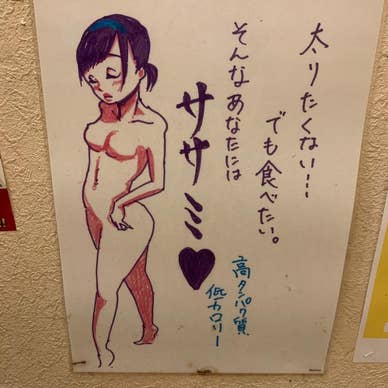 太りたくない…
でも食べたい。
そんなあなたには
ササミ♥
高タンパク質
低カロリー